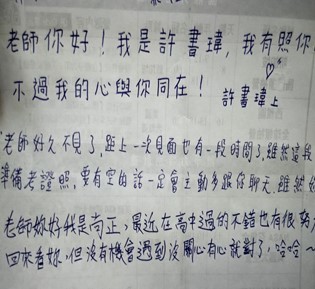 老師你好！我是許書瑋，我有照你
不過我的心與你同在！
許書瑋上
老師好久不見了，距上一次見面也有一段時間了，雖然這段
準備考證照，要有空的話一定會主動多跟你聊天，雖然
老師妳好我是尚正，最近在高中過的不錯也有很努
回來看妳，但沒有機會遇到沒關心有心就對了，哈哈～